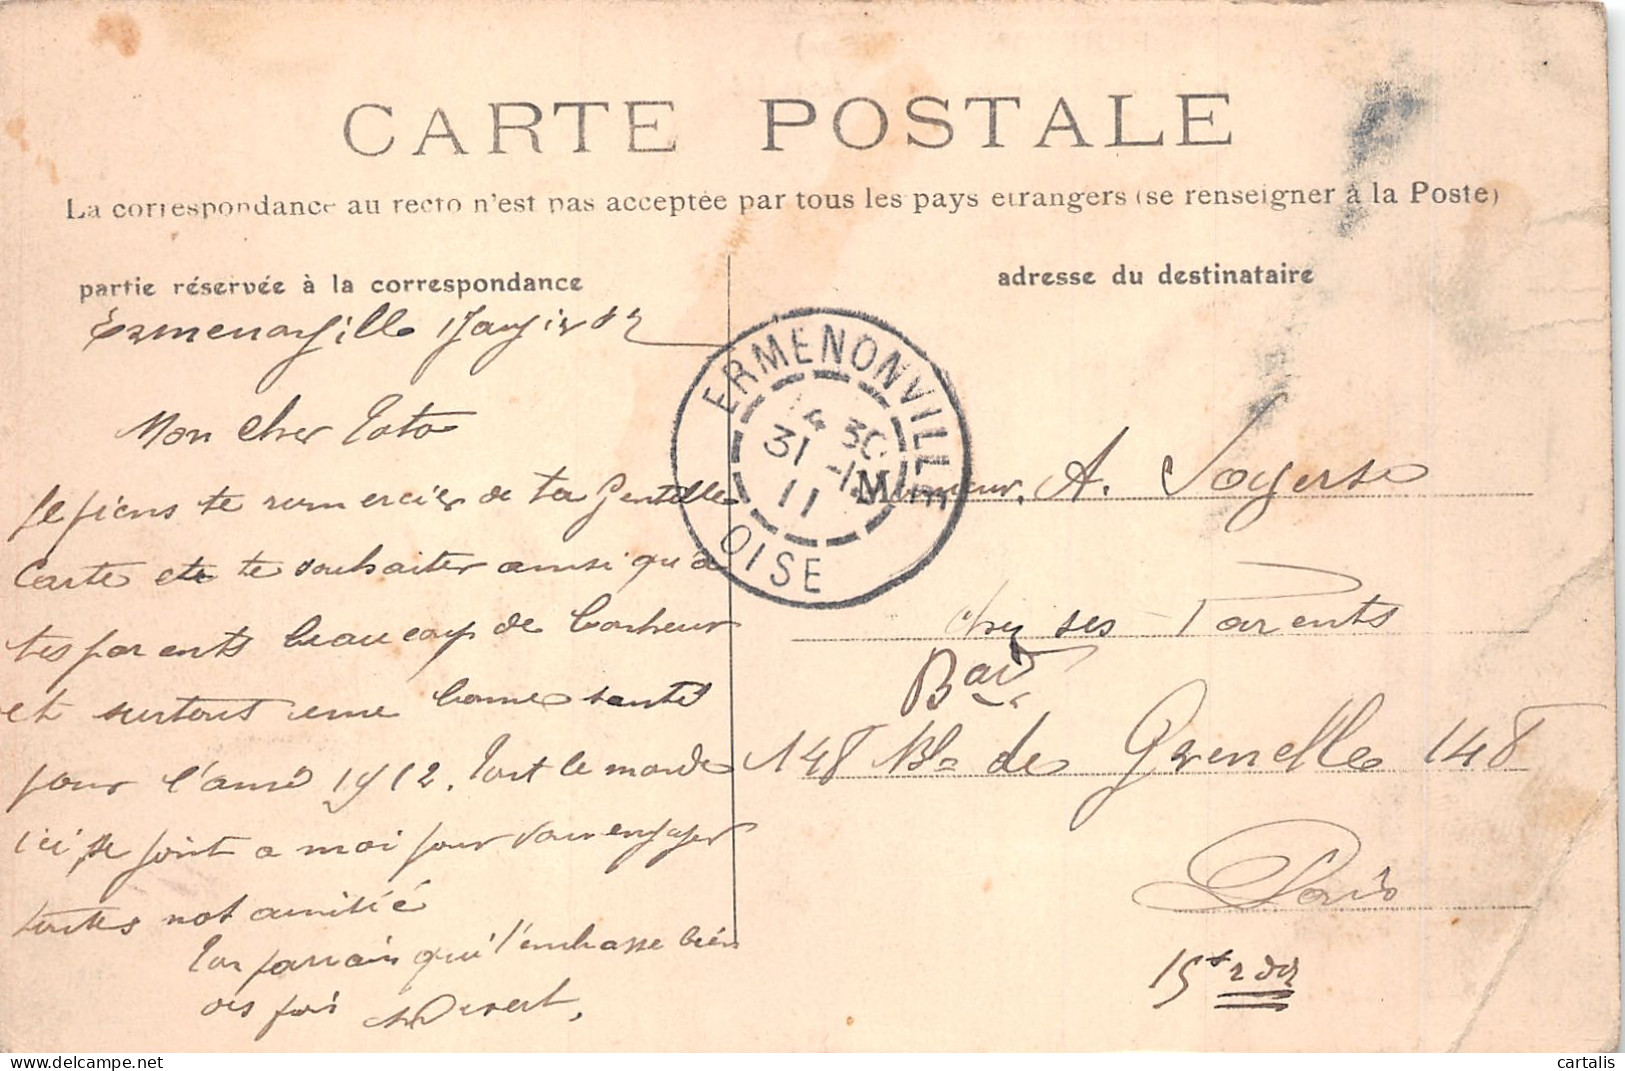 CARTE POSTALE
La correspondance au recto n'est pas acceptée par tous les pays etrangers (se renseigner à la Poste)
partie réservée à la correspondance
adresse du destinataire
Ermenonville 1 Janvier
Mon cher Toto
Je viens te remercier de ta gentille
Carte et te souhaiter ainsi qu'a
tes parents beaucoup de bonheur
et surtout une bonne santé
pour l'année 1912. Tout le monde
ici se joint a moi pour vous envoyer
toutes not amitié
Ton parrain qui t'embrasse bien
des fois
ERMENONVILLE
30
31 -12
11
OISE
Monsieur. A.
chez ses Parents
Bard
148 Bd de Grenelle 148
Paris
15e
cartalis